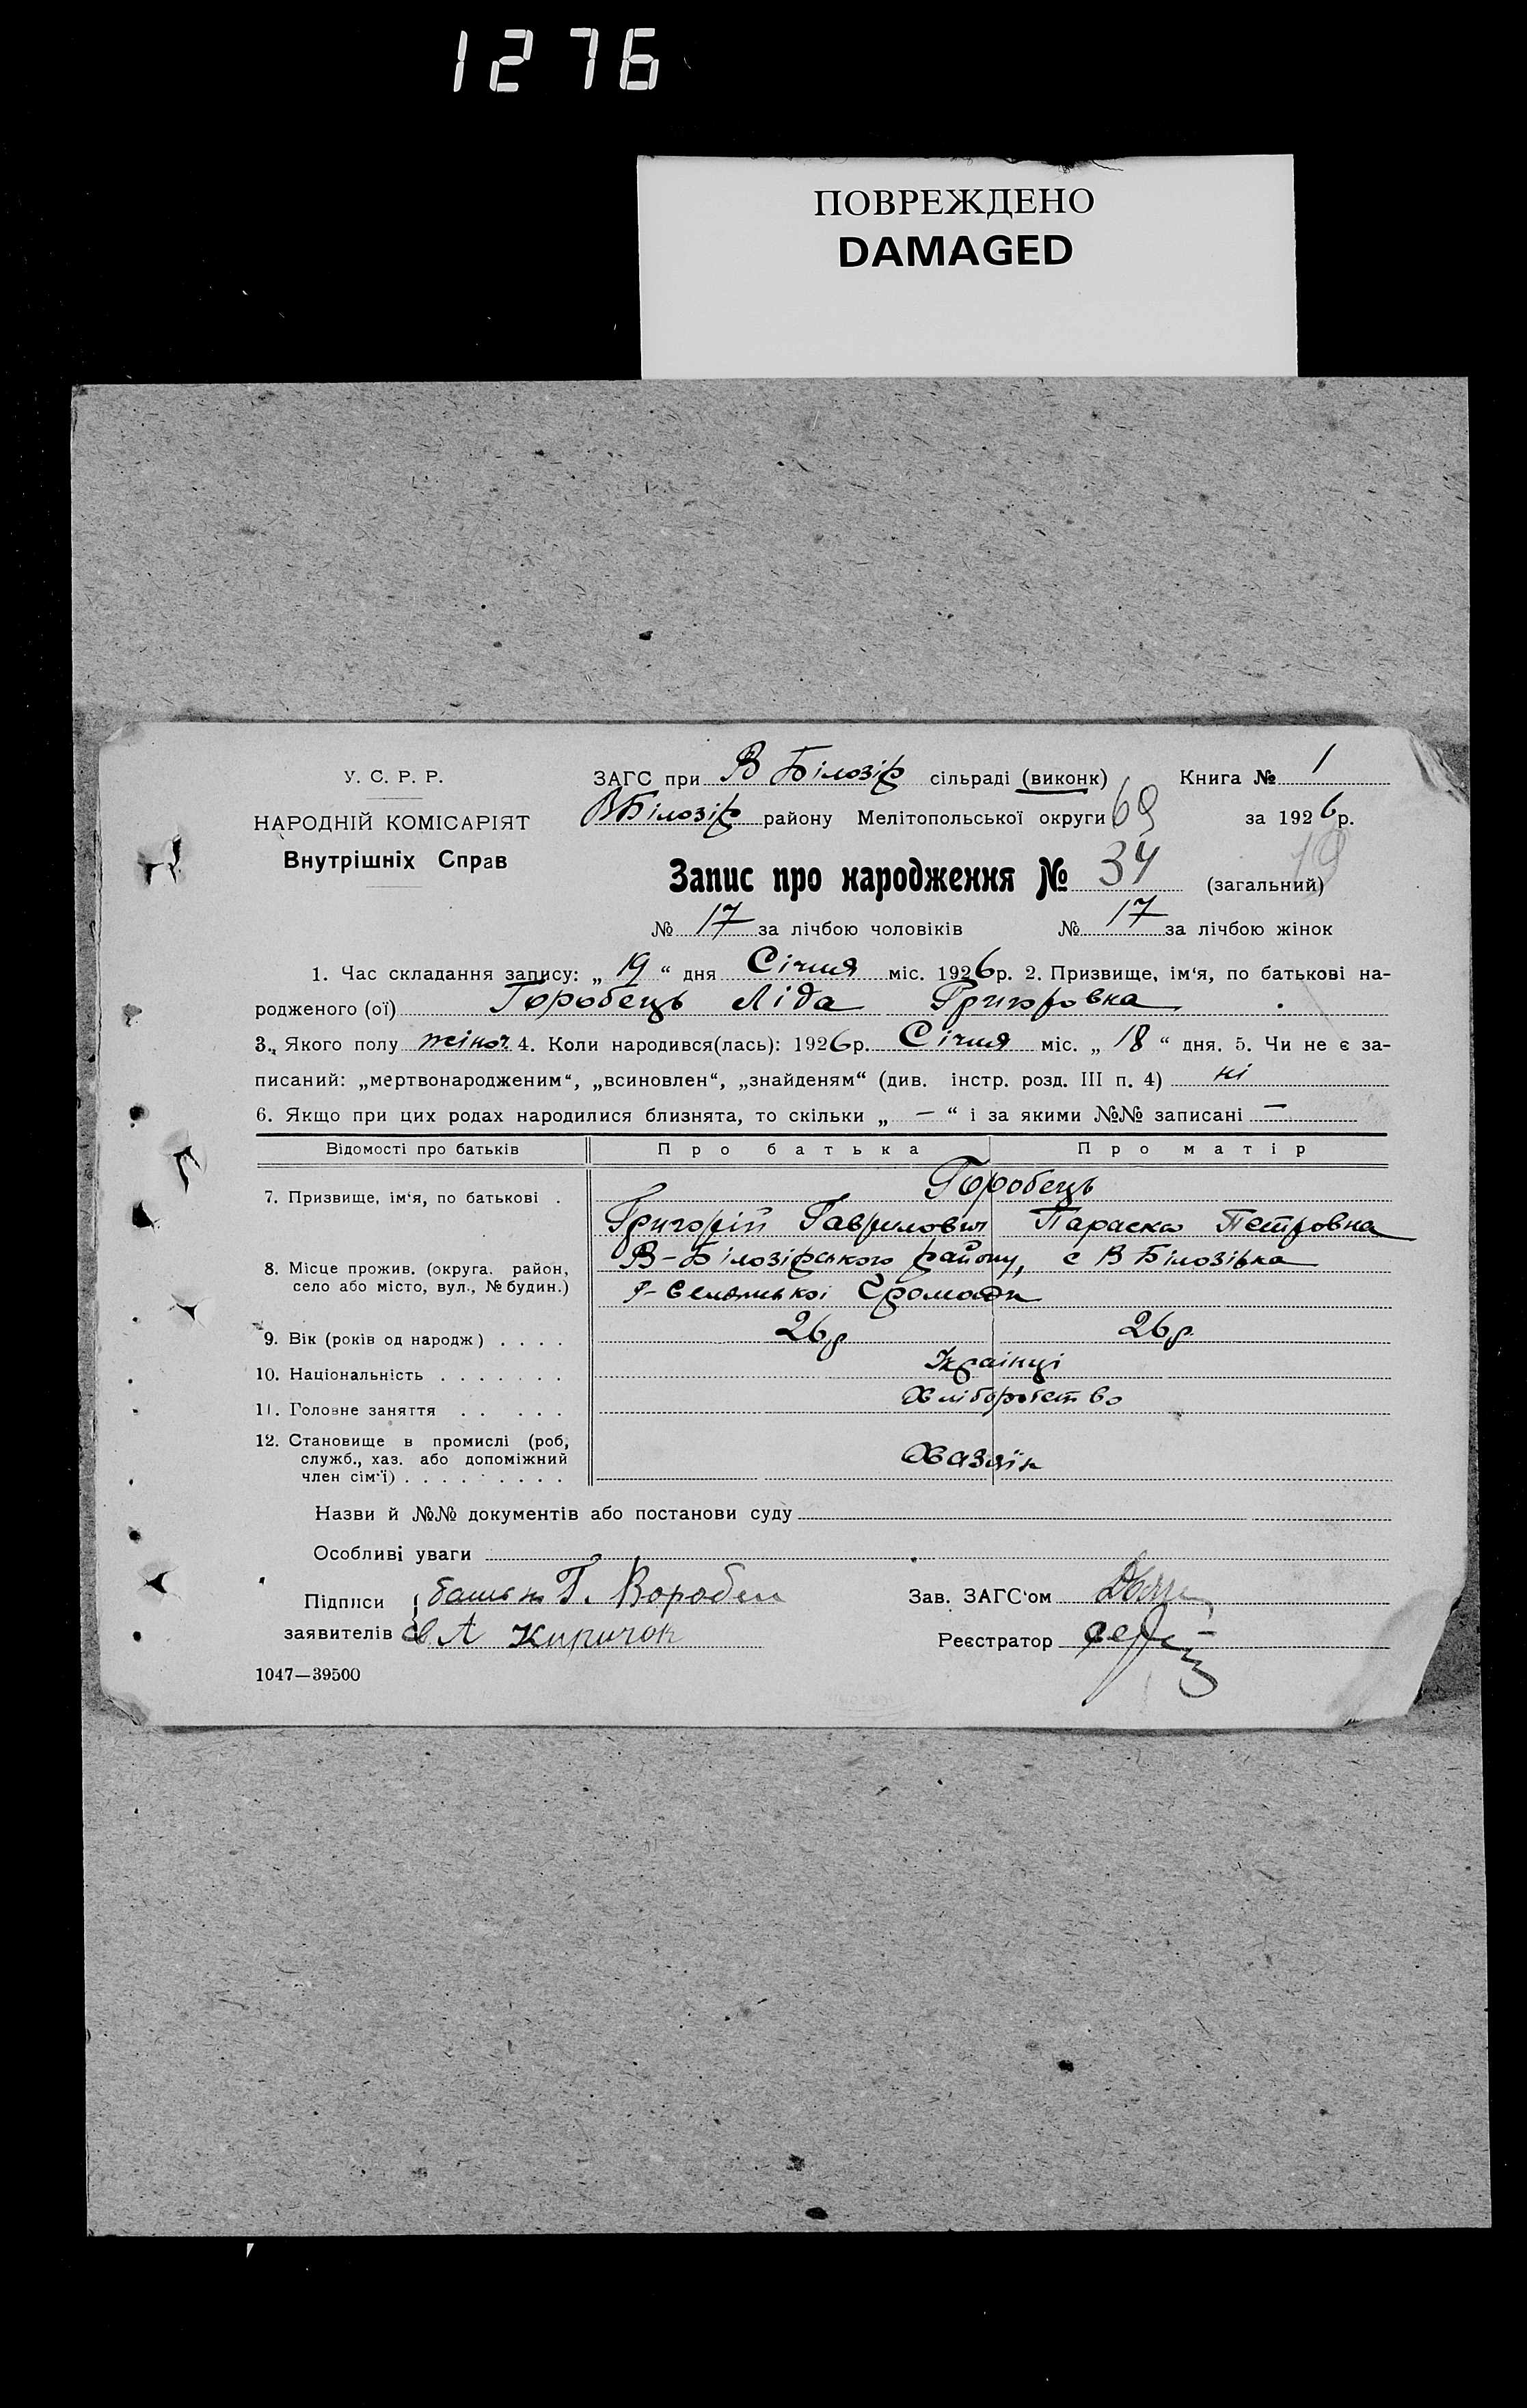 1276
ПОВРЕЖДЕНО
DAMAGED
У. С. Р. Р.
НАРОДНІЙ КОМІСАРІЯТ
Внутрішніх Справ
ЗАГС при В Білозір сільраді (виконк) Книга № 1
ВБілозір району Мелітопольської округи 69 за 1926 р.
Запис про народження № 34 (загальний) 19
№ 17 за лічбою чоловіків № 17 за лічбою жінок
1. Час складання запису: „ 19 “ дня Січня міс. 1926р. 2. Призвище, ім‘я, по батькові на-
родженого (ої) Горобець Ліда Григоровна
3. Якого полу жіноч 4. Коли народився(лась): 1926р. Січня міс. „ 18 “ дня. 5. Чи не є за-
писаний: „мертвонародженим“, „всиновлен“, „знайденям“ (див. інстр. розд. III п. 4) ні
6. Якщо при цих родах народилися близнята, то скільки „ — “ і за якими №№ записані —
Відомості про батьків Про батька Про матір
7. Призвище, ім‘я, по батькові . Горобець
Григорій Гаврилович Параска Петровна
8. Місце прожив. (округа. район, В-Білозірського району, с В Білозірка
село або місто, вул., № будин.) громади
9. Вік (років од народж) . . . . 26р 26р.
10. Національність . . . . . . . Українці
11. Головне заняття . . . . . Хліборобство
12. Становище в промислі (роб,
служб., хаз. або допоміжний Хазяїн
член сім‘ї) . . . . . . . . .
Назви й №№ документів або постанови суду
Особливі уваги
Підписи батько Г. Воробец Зав. ЗАГС‘ом
заявителів А Киричок Реєстратор
1047—39500